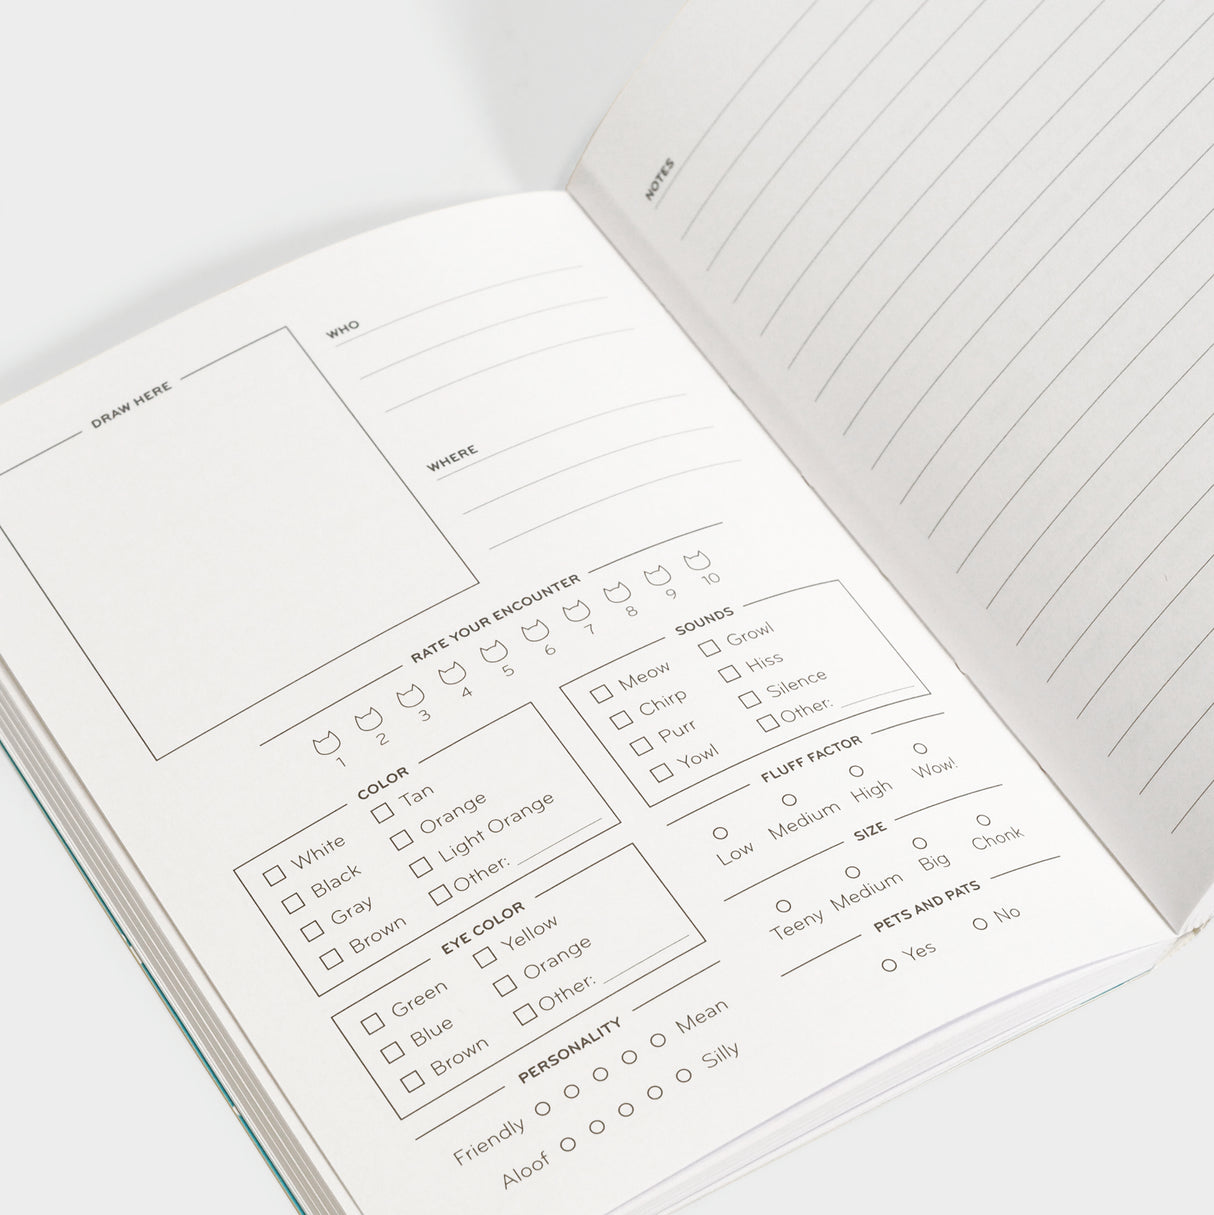 NOTES
WHO
DRAW HERE
WHERE
RATE YOUR ENCOUNTER
1 2 3 4 5 6 7 8 9 10
COLOR
White
Black
Gray
Brown
Tan
Orange
Light Orange
Other:
SOUNDS
Meow
Chirp
Purr
Yowl
Growl
Hiss
Silence
Other:
EYE COLOR
Green
Blue
Brown
Yellow
Orange
Other:
FLUFF FACTOR
Low Medium High Wow!
SIZE
Teeny Medium Big Chonk
PETS AND PATS
Yes No
PERSONALITY
Friendly Mean
Aloof Silly